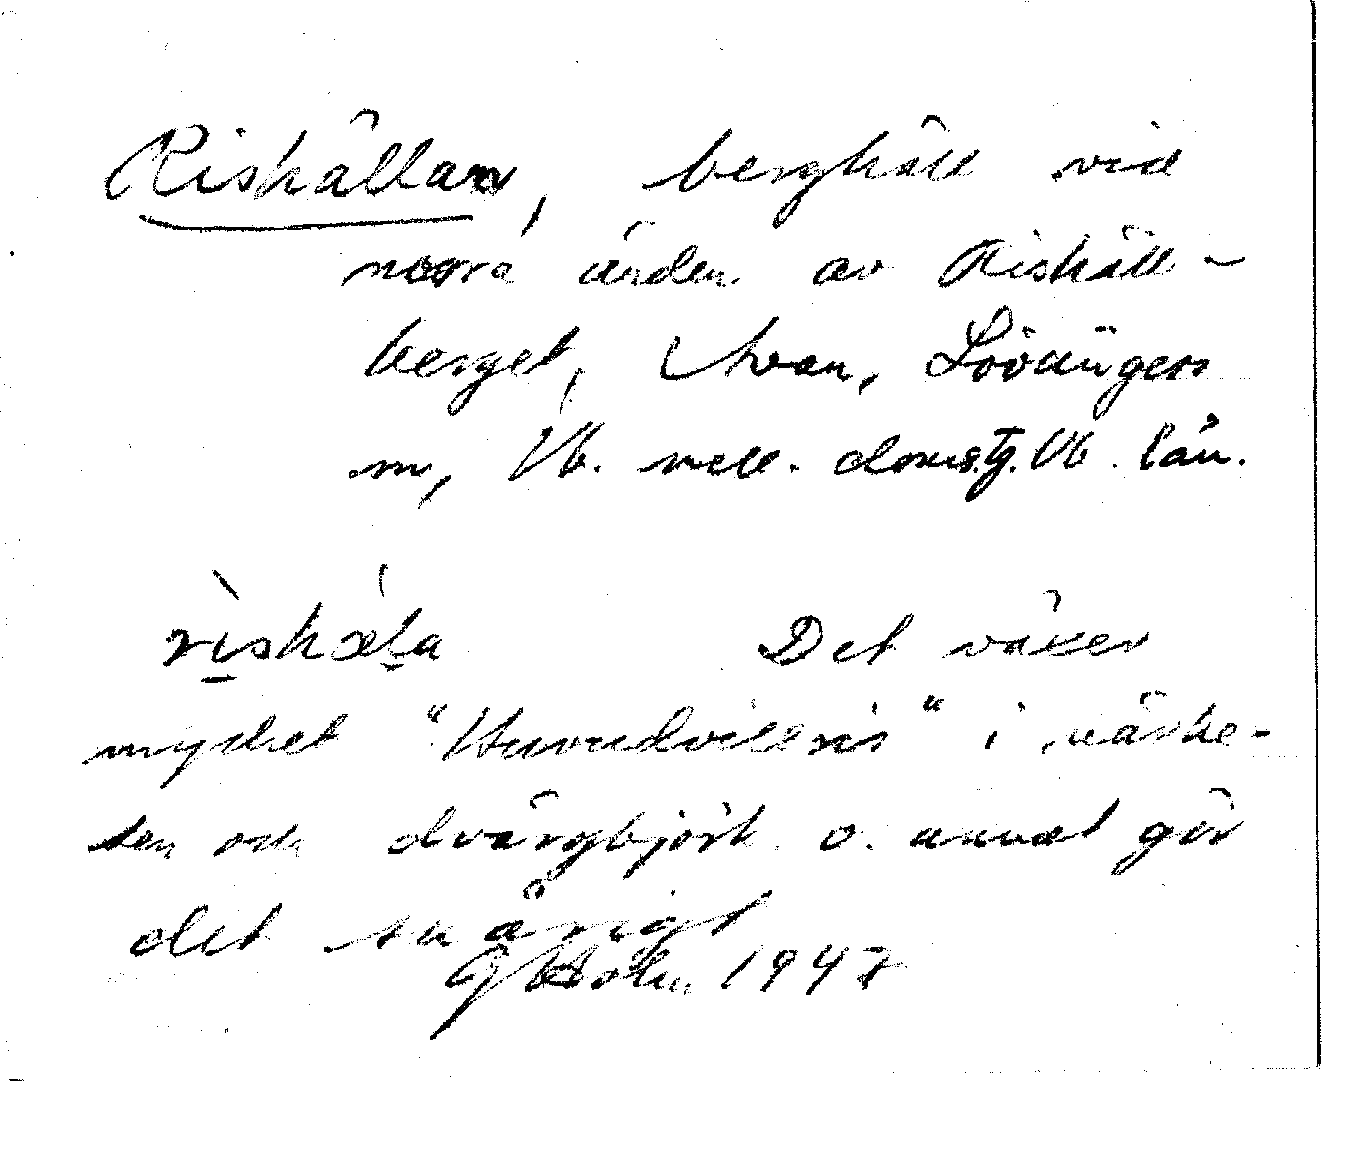 Riskällan, berghäll vid
norra änden av Riskäll-
berget, Avan, Lövångers
sn, Vb. mell. doms.tg. Vb. län.
rìskǽla Det växer
mycket "Huvudvillris" i närhe-
ten och dvärgbjörk o. annat gör
det snårigt
G Holm 1947